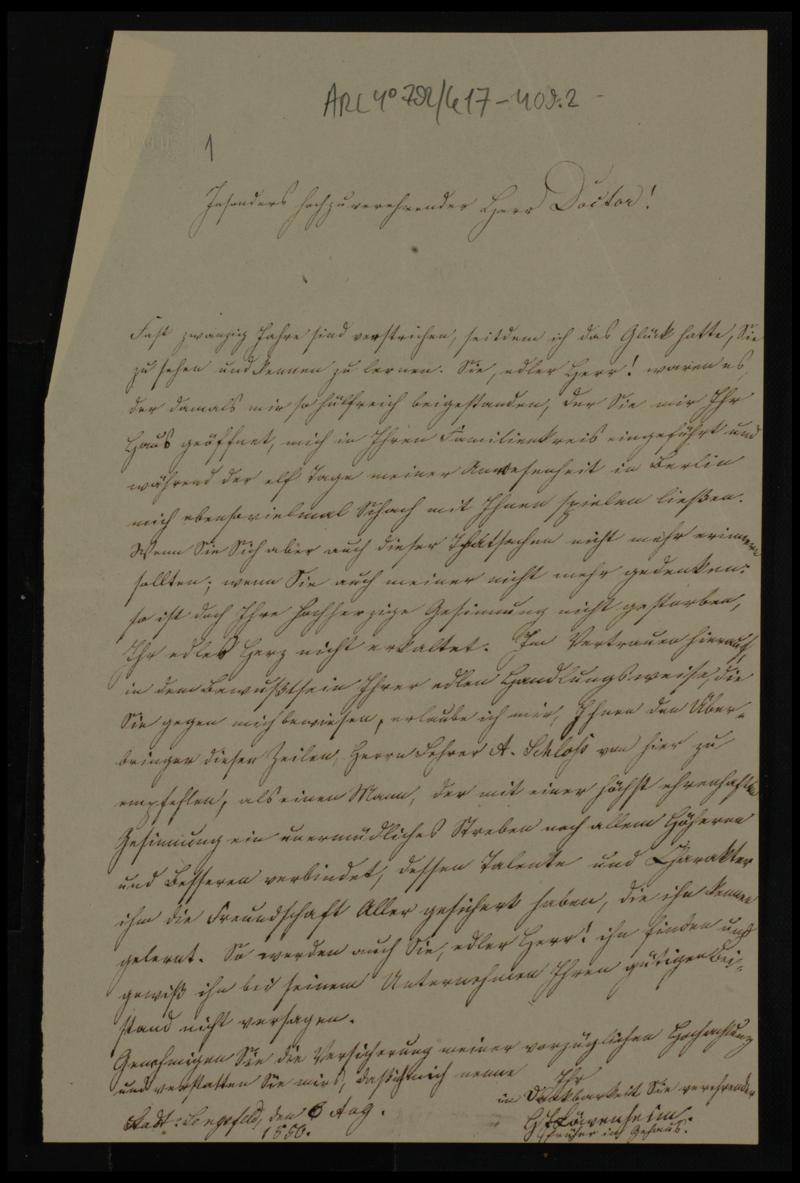 ARC 4° 792/G17-409.2
1
Besonders hochzuverehrender Herr Doctor!
Fast zwanzig Jahre sind verstrichen, seitdem ich das Glück hatte, Sie
zu sehen und kennen zu lernen. Sie, edler Herr! waren es,
der damals mir so hülfreich beigestanden, der Sie mir Ihr
Haus geöffnet, mich in Ihren Familienkreis eingeführt und
während der elf Tage meiner Anwesenheit in Berlin
mich ebensovielmal Schach mit Ihnen spielen ließen.
Wenn Sie Sich aber auch dieser Thatsachen nicht mehr erinnern
sollten; wenn Sie auch meiner nicht mehr gedenken:
so ist doch Ihre hochherzige Gesinnung nicht gestorben,
Ihr edles Herz nicht erkaltet. Im Vertrauen hierauf,
in dem Bewußtsein Ihrer edlen Handlungsweise, die
Sie gegen mich bewiesen, erlaube ich mir, Ihnen den Über-
bringer dieser Zeilen, Herrn Lehrer A. Schloß von hier zu
empfehlen, als einen Mann, der mit einer höchst ehrenhaften
Gesinnung ein unermüdliches Streben nach allem Höheren
und Besseren verbindet, dessen Talente und Charakter
ihm die Freundschaft Aller gesichert haben, die ihn kennen
gelernt. So werden auch Sie, edler Herr! ihn finden und
gewiß ihn bei seinem Unternehmen Ihren gütigen Bei-
stand nicht versagen.
Genehmigen Sie die Versicherung meiner vorzüglichen Hochachtung
und verstatten Sie mir, daß ich mich nenne
Ihr
in Dankbarkeit Sie verehrender
Löwenheim.
früher in Gehaus.
Stadt-Lengsfeld, den 6 Aug.
1850.